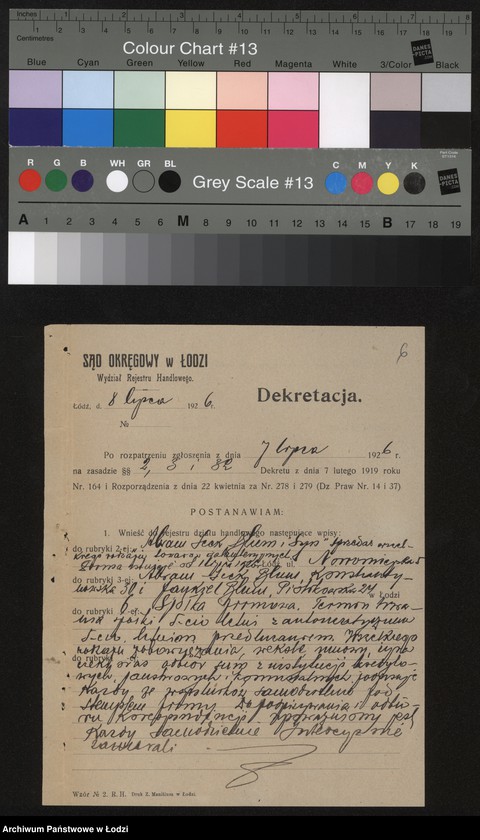 Inches 1 2 3 4 5 6 7 8
Centimetres 1 2 3 4 5 6 7 8 9 10 11 12 13 14 15 16 17 18 19
Colour Chart #13
DANES-PICTA
Blue Cyan Green Yellow Red Magenta White 3/Color Black
R G B WH GR BL
Grey Scale #13
C M Y K
DANES-PICTA
A 1 2 3 4 5 6 M 8 9 10 11 12 13 14 15 B 17 18 19
6
SĄD OKRĘGOWY w ŁODZI
Wydział Rejestru Handlowego.
Dekretacja.
Łódź, d. 8 lipca 1926 r.
№
Po rozpatrzeniu zgłoszenia z dnia 7 lipca 1926 r.
na zasadzie §§ 2, 3 i 82 Dekretu z dnia 7 lutego 1919 roku
Nr. 164 i Rozporządzenia z dnia 22 kwietnia za Nr. 278 i 279 (Dz. Praw Nr. 14 i 37).
POSTANAWIAM:
1. Wnieść do rejestru działu handlowego następujące wpisy:
do rubryki 2-ej: Abram Icek Blum i Syn" sprzedaż
rodzaju towarów galanteryjnych
Firma istnieje od 1926 Łódź, ul. Nowomiejska 5
do rubryki 3-ej: Abram Icek Blum, Konstanty-
nowska 30 i Jankiel Blum, Piotrkowska 24 w Łodzi
do rubryki Spółka firmowa. Termin trwa-
nia spółki
do rubryki
oraz odbiór sum z instytucji kredyto-
wych, państwowych, komunalnych podpisuje
każdy ze wspólników samodzielnie pod
stemplem firmy. Do podpisywania i odbio-
ru korespondencji upoważniony jest
każdy samodzielnie. Intercyzy nie
zawierali
Wzór № 2. R. H. Druk Z. Manitius w Łodzi.
Archiwum Państwowe w Łodzi